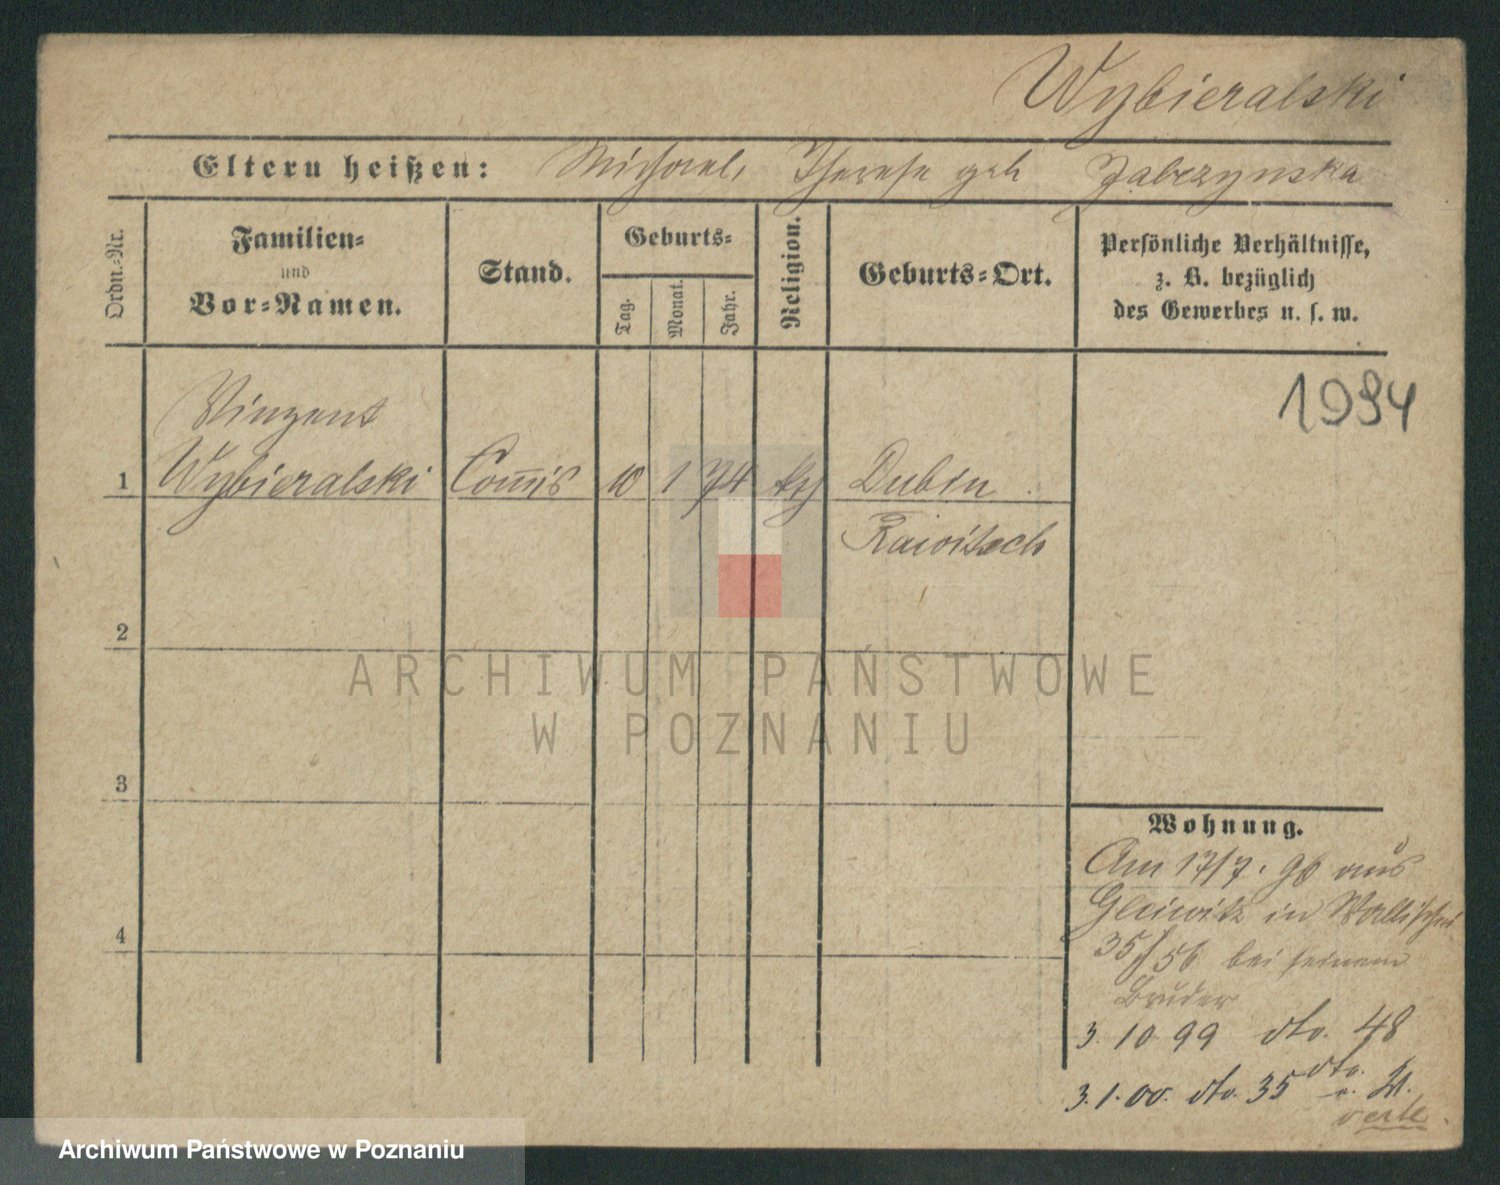 Wybieralski
Eltern heißen: Michael, Therese geb Jabczynska
Ordn.-Nr.
Familien-
und
Vor-Namen.
Stand.
Geburts-
Tag.
Monat.
Jahr.
Religion.
Geburts-Ort.
Persönliche Verhältnisse,
z. B. bezüglich
des Gewerbes u. s. w.
1994
Vinzent
1 Wybieralski Com̅is 10 1 74 kth Dubin
Rawitsch
2
3
4
Wohnung.
Am 17/7. 98 aus
Gleiwitz in Wallischei
35/56 bei seinem
Bruder
3. 10 99 dto. 48
3. 1. 00. dto. 35 dto.
ARCHIWUM PAŃSTWOWE
W POZNANIU
Archiwum Państwowe w Poznaniu